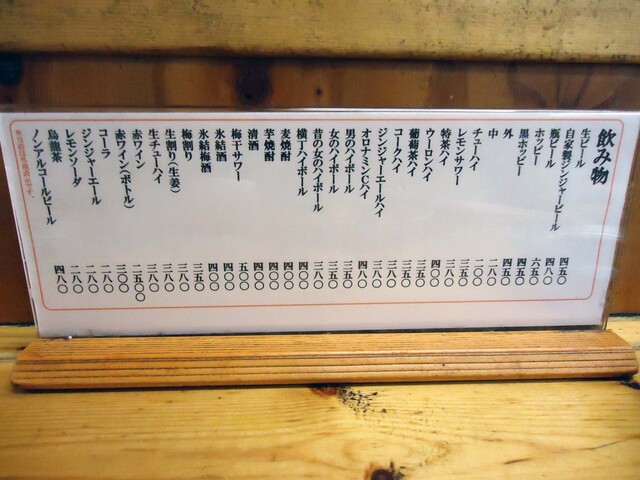 飲み物
生ビール 四五〇
自家製ジンジャービール 四八〇
瓶ビール 六五〇
ホッピー 四五〇
黒ホッピー 四五〇
外 二八〇
中 二〇〇
チューハイ 三五〇
レモンサワー 三八〇
特茶ハイ 四〇〇
ウーロンハイ 三五〇
葡萄茶ハイ 三五〇
コークハイ 三八〇
ジンジャーエールハイ 三八〇
オロナミンCハイ 四八〇
男のハイボール 三五〇
女のハイボール 三五〇
昔の女のハイボール 三八〇
横丁ハイボール 四〇〇
麦焼酎 四〇〇
芋焼酎 四〇〇
清酒 四〇〇
梅干サワー 五〇〇
氷結酒 四〇〇
氷結梅酒 四〇〇
梅割り 三五〇
生割り(生姜) 三八〇
生チューハイ 三八〇
赤ワイン 三八〇
赤ワイン(ボトル) 二五〇〇
コーラ 三〇〇
ジンジャーエール 二八〇
レモンソーダ 二八〇
烏龍茶 二八〇
ノンアルコールビール 四八〇